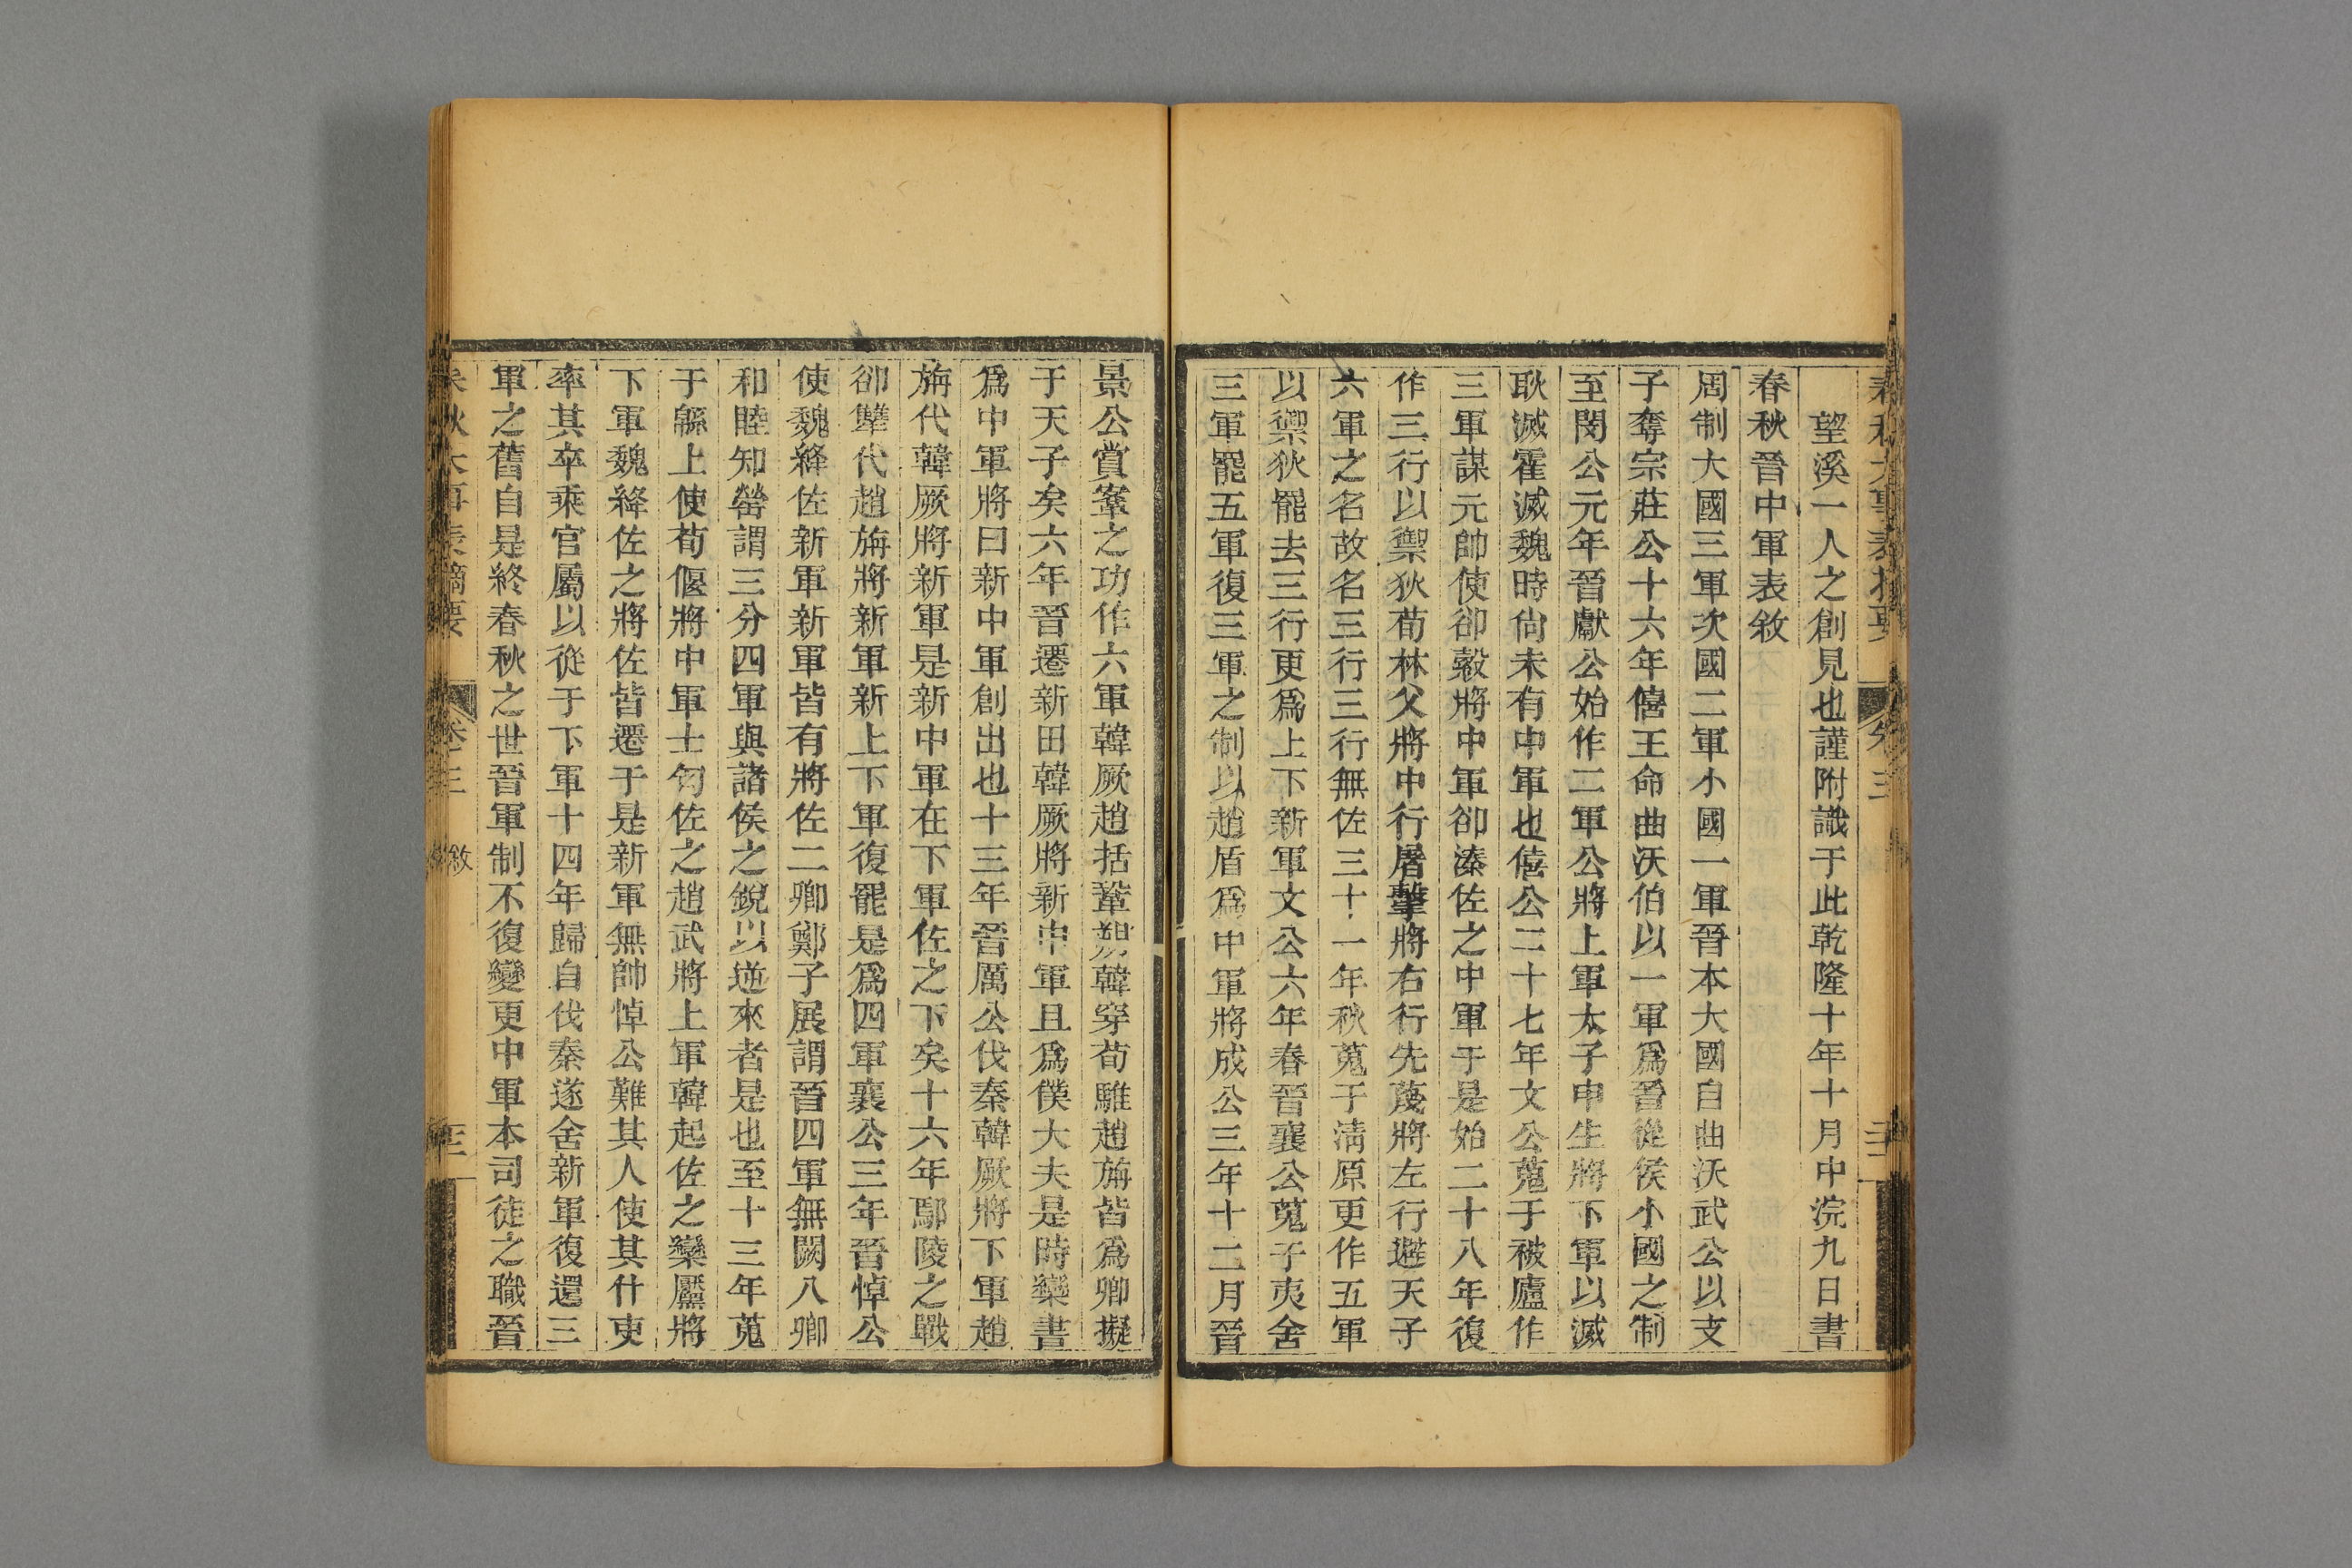 望溪一人之創見也謹附識于此乾隆十年十月中浣九日書
春秋晉中軍表敘
周制大國三軍次國二軍小國一軍晉本大國自曲沃武公以支
子奪宗莊公十六年僖王命曲沃伯以一軍爲晉從侯小國之制
至閔公元年晉獻公始作二軍公將上軍太子申生將下軍以滅
耿滅霍滅魏時尙未有中軍也僖公二十七年文公蒐于被廬作
三軍謀元帥使卻縠將中軍卻溱佐之中軍于是始二十八年復
作三行以禦狄荀林父將中行屠擊將右行先蔑將左行避天子
六軍之名故名三行三行無佐三十一年秋蒐于淸原更作五軍
以禦狄罷去三行更爲上下新軍文公六年春晉襄公蒐于夷舍
三軍罷五軍復三軍之制以趙盾爲中軍將成公三年十二月晉
景公賞鞌之功作六軍韓厥趙括鞏朔韓穿荀騅趙旃皆爲卿擬
于天子矣六年晉遷新田韓厥將新中軍且爲僕大夫是時欒書
爲中軍將曰新中軍創出也十三年晉厲公伐秦韓厥將下軍趙
旃代韓厥將新軍是新中軍在下軍佐之下矣十六年鄢陵之戰
卻犨代趙旃將新軍新上下軍復罷是爲四軍襄公三年晉悼公
使魏絳佐新軍新軍皆有將佐二卿鄭子展謂晉四軍無闕八卿
和睦知罃謂三分四軍與諸侯之銳以逆來者是也至十三年蒐
于緜上使荀偃將中軍士匄佐之趙武將上軍韓起佐之欒黶將
下軍魏絳佐之將佐皆遷于是新軍無帥悼公難其人使其什吏
率其卒乘官屬以從于下軍十四年歸自伐秦遂舍新軍復還三
軍之舊自是終春秋之世晉軍制不復變更中軍本司徒之職晉